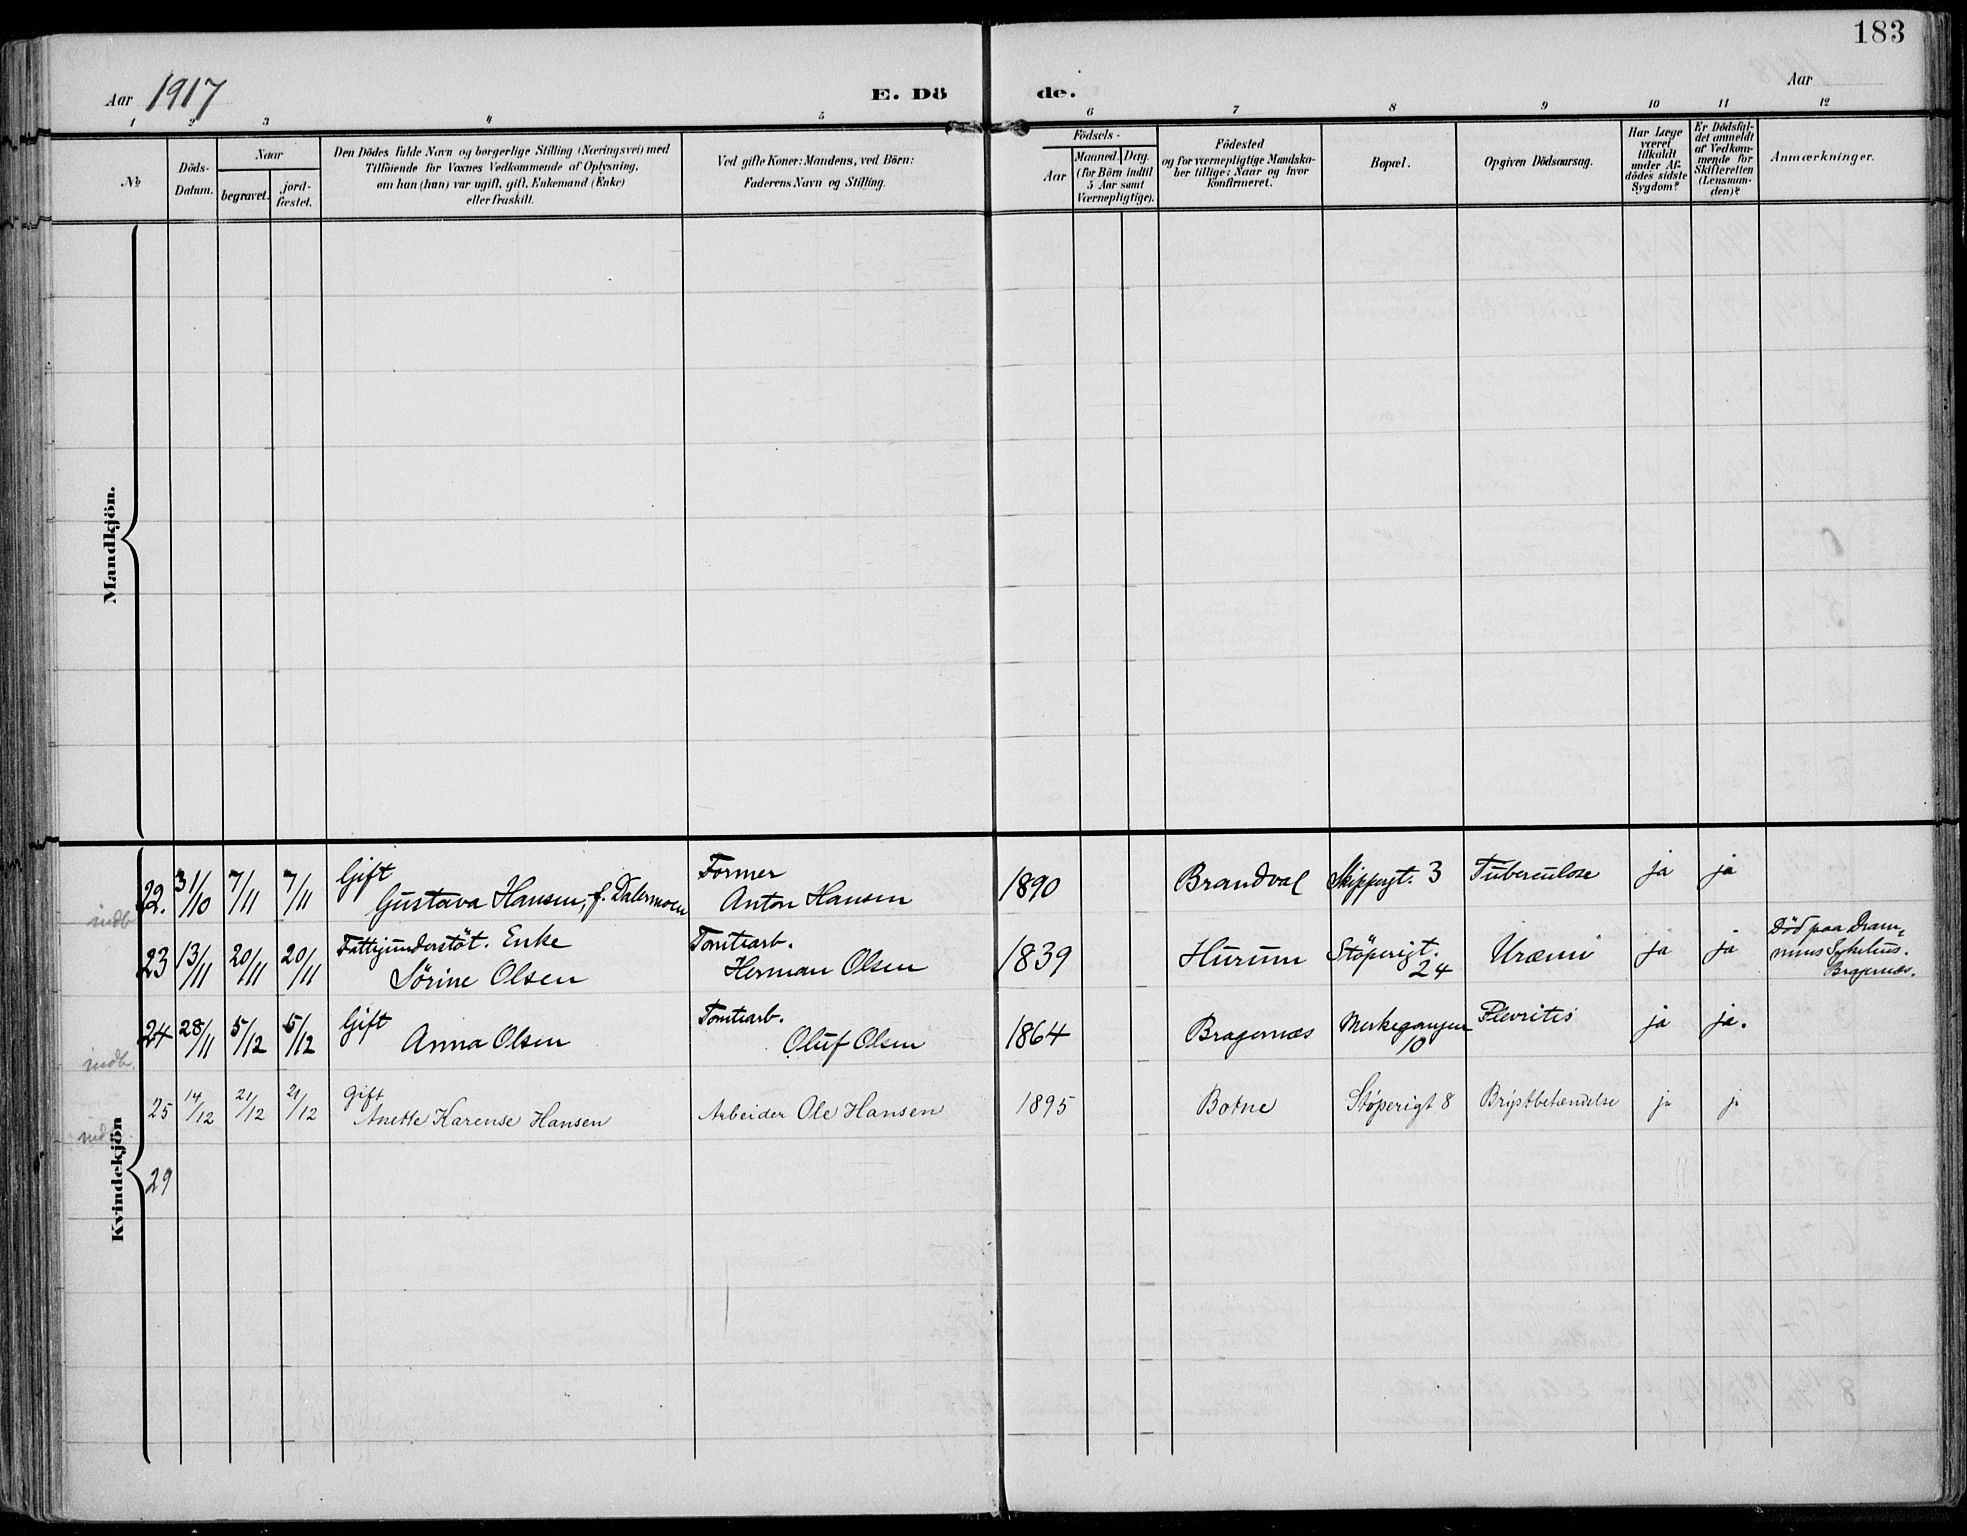 183
Aar 1917
E. Dö de.
Aar
1 2 3 4 5 6 7 8 9 10 11 12
No
Döds-
Datum.
Naar
begravet.
jord-
fæstet.
Den Dödes fulde Navn og borgerlige Stilling (Næringsvei) med
Tilföiende for Voxnes Vedkommende af Oplysning,
om han (hun) var ugift, gift, Enkemand (Enke)
eller fraskilt.
Ved gifte Koner: Mandens, ved Börn:
Faderens Navn og Stilling.
Födsels-
Aar
Maaned.
Dag.
(for Börn indtil
5 Aar samt
Værnepligtige).
Födested
og for værnepligtige Mandska-
ber tillige: Naar og hvor
konfirmeret.
Bopæl.
Opgiven Dödsaarsag.
Har Læge
været
tilkaldt
under Af-
dödes sidste
Sygdom?
Er Dödsfal-
det anmeldt
af Vedkom-
mende for
Skifteretten
(Lensman-
den)?
Anmærkninger.
Mandkjön.
Kvindekjön
22. 31/10 7/11 7/11 Gift Former
Gustava Hansen, f. Dalermoen Anton Hansen 1890 Brandval Skippergt. 3 Tuberculose ja ja
indb.
23 13/11 20/11 20/11 Fattigunderstöt. Enke Tomtearb.
Sörine Olsen Herman Olsen 1839 Hurum Stöperigt. 24 Uræmi ja ja
Död paa Dram-
mens Sykehus.
Bragernæs.
24 28/11 5/12 5/12 Gift Tomtearb.
Anna Olsen Oluf Olsen 1864 Bragernæs Merkegangen 10 Plevritis ja ja.
indb.
25 14/12 21/12 21/12 Gift
Anette Karense Hansen Arbeider Ole Hansen 1895 Botne Stöperigt 8 Brystbetændelse ja j
indb.
29